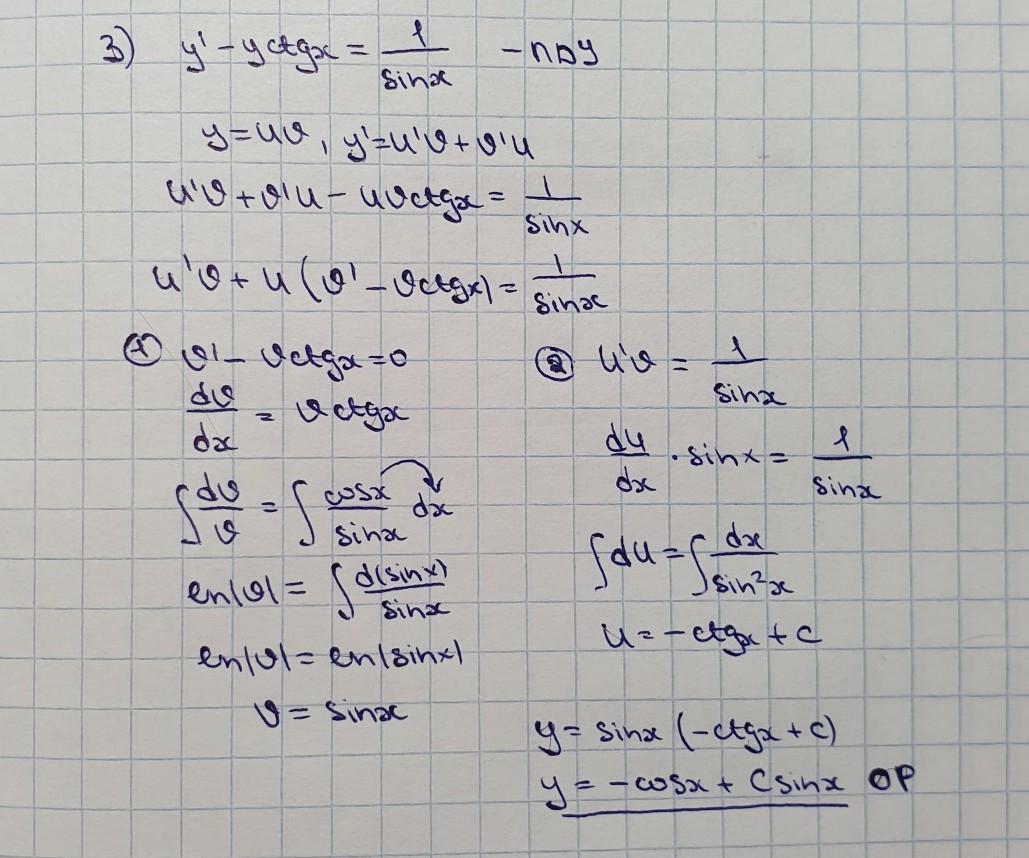 3) y' - yctgx = 1/sinx - ЛДУ
y = uϑ, y' = u'ϑ + ϑ'u
u'ϑ + ϑ'u - uϑctgx = 1/sinx
u'ϑ + u(ϑ' - ϑctgx) = 1/sinx
① ϑ' - ϑctgx = 0
dϑ/dx = ϑctgx
∫dϑ/ϑ = ∫cosx/sinx dx
ln|ϑ| = ∫d(sinx)/sinx
ln|ϑ| = ln|sinx|
ϑ = sinx
② u'ϑ = 1/sinx
du/dx · sinx = 1/sinx
∫du = ∫dx/sin²x
u = -ctgx + c
y = sinx (-ctgx + c)
y = -cosx + Csinx OP